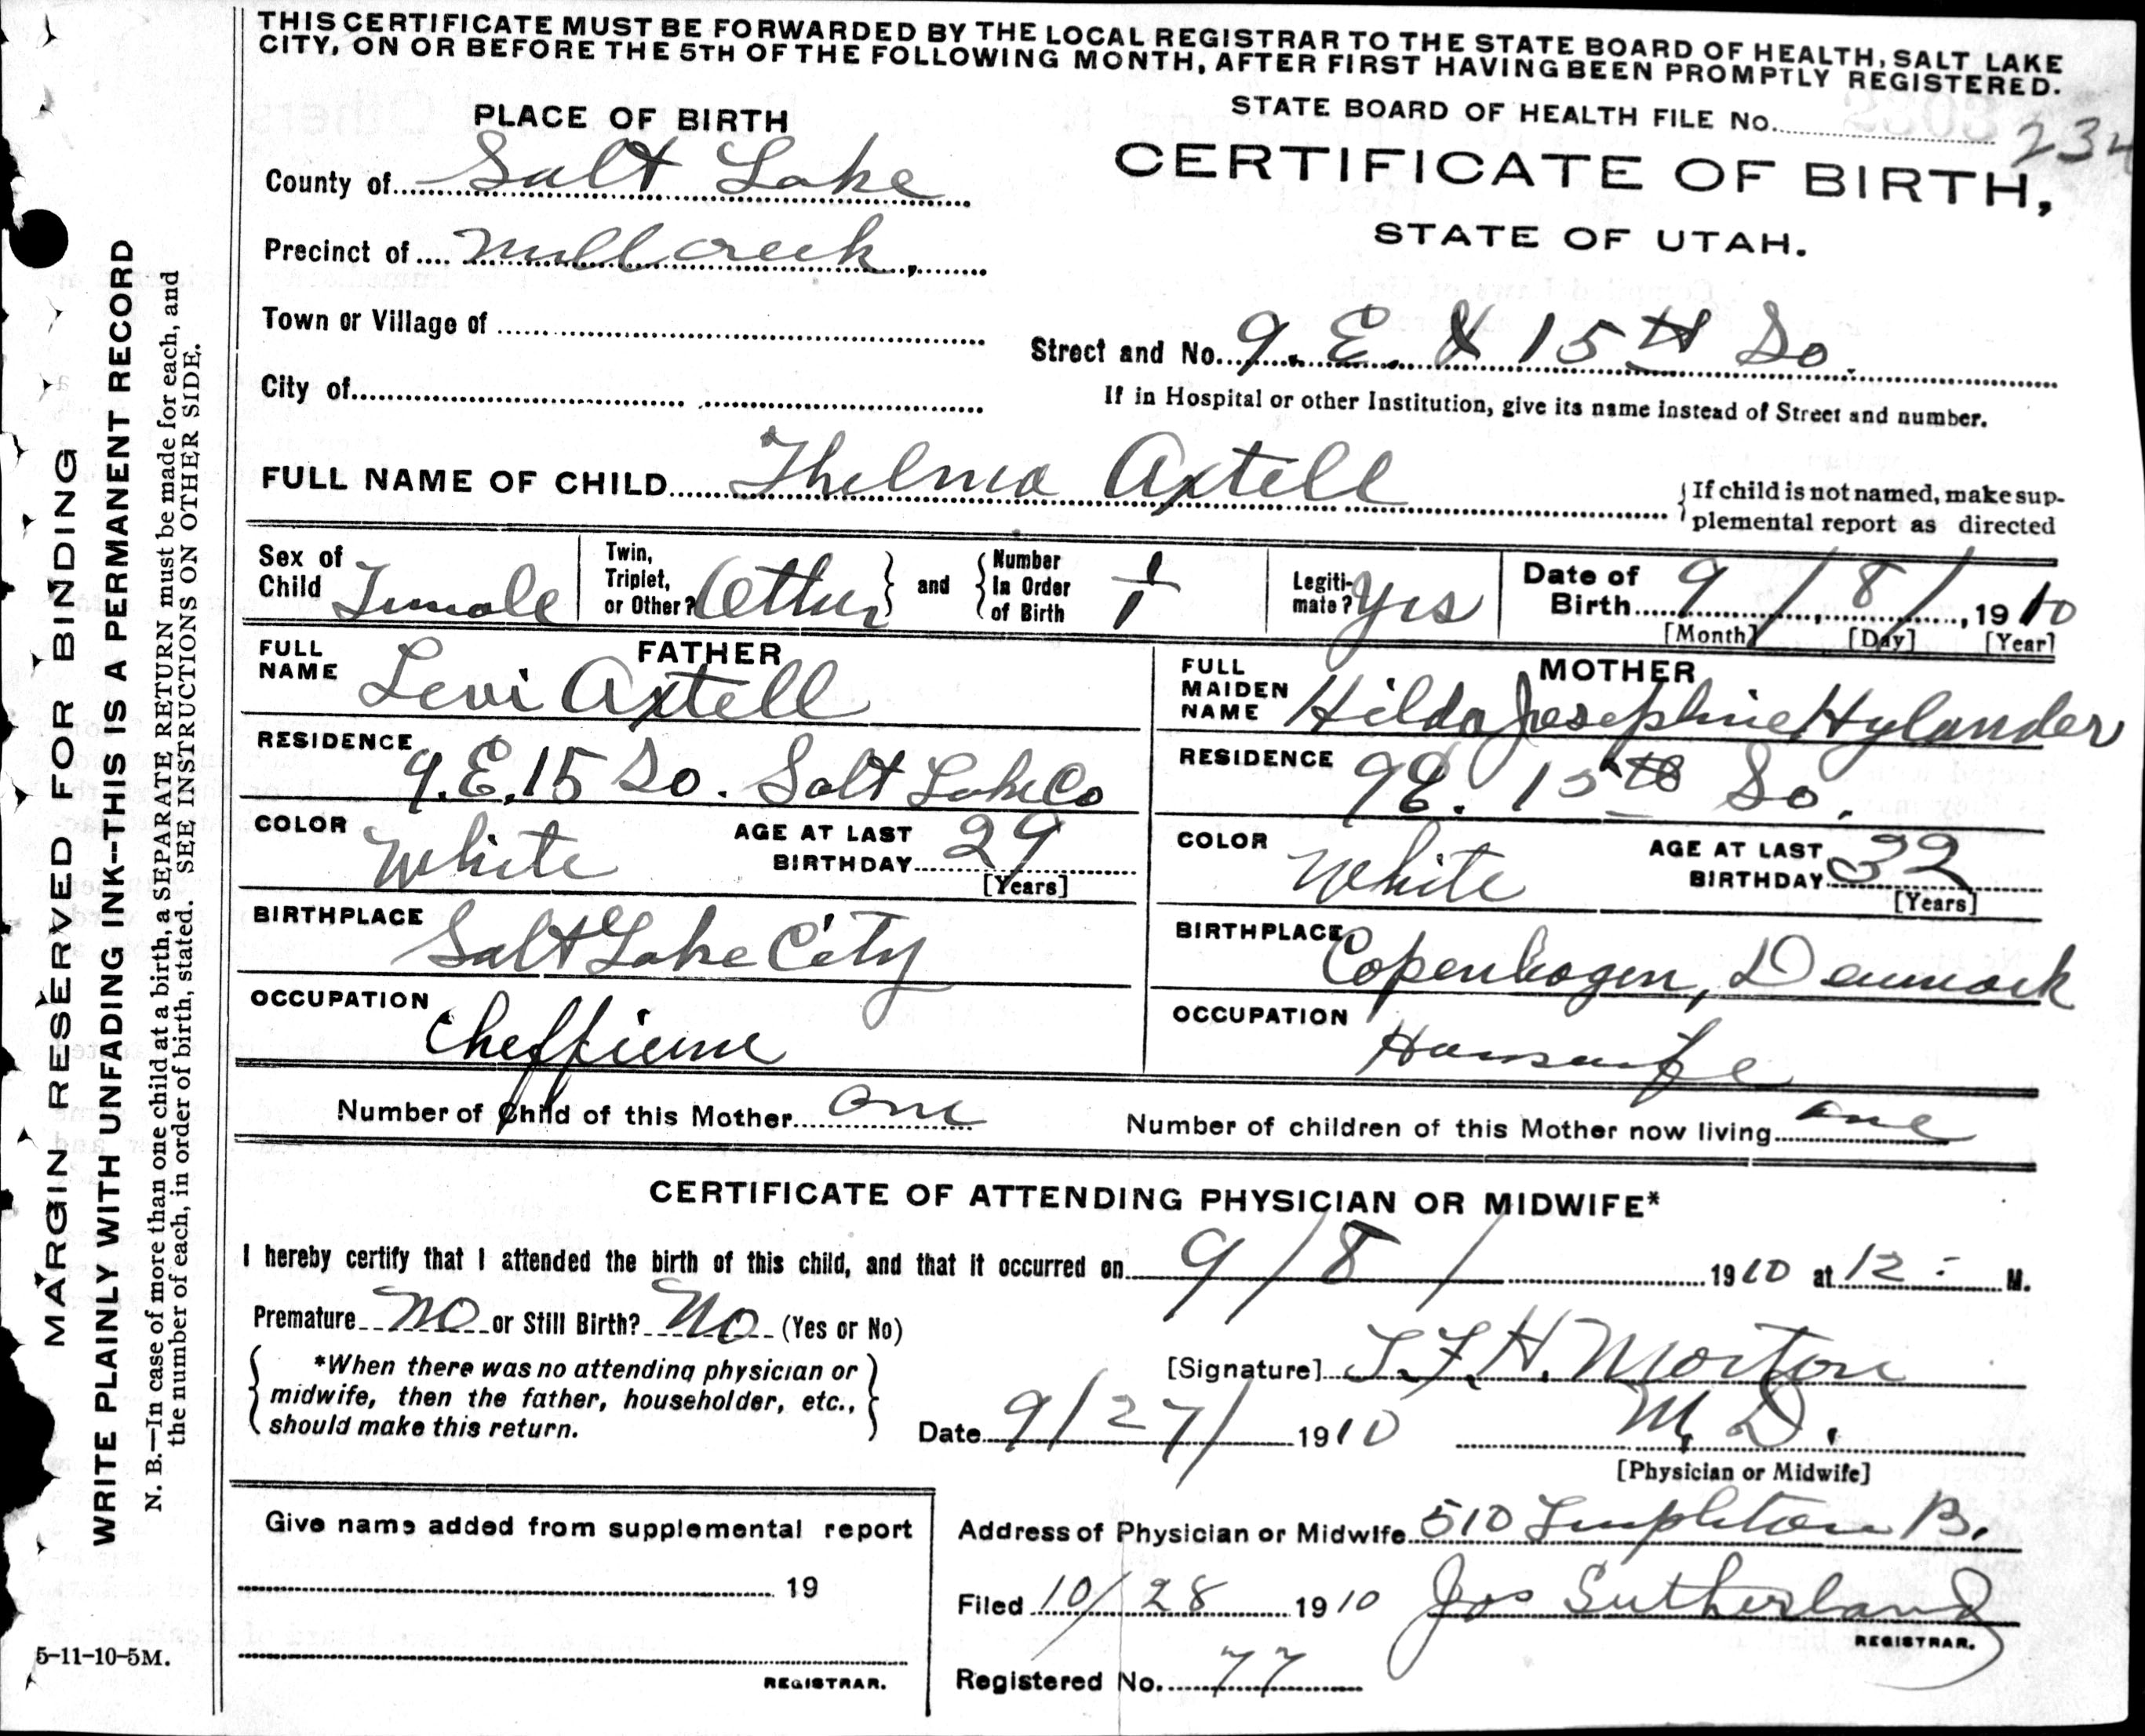 THIS CERTIFICATE MUST BE FORWARDED BY THE LOCAL REGISTRAR TO THE STATE BOARD OF HEALTH, SALT LAKE
CITY, ON OR BEFORE THE 5TH OF THE FOLLOWING MONTH, AFTER FIRST HAVING BEEN PROMPTLY REGISTERED.
STATE BOARD OF HEALTH FILE No. 234
PLACE OF BIRTH
CERTIFICATE OF BIRTH,
STATE OF UTAH.
County of Salt Lake
Precinct of Mill creek,
Town or Village of
Street and No. 9. E. & 15th So.
City of
If in Hospital or other Institution, give its name instead of Street and number.
FULL NAME OF CHILD Thelma Axtell
If child is not named, make sup-
plemental report as directed
Sex of Child Female
Twin, Triplet, or Other? Other and Number In Order of Birth 1
Legiti-mate? Yes
Date of Birth 9 / 8 /, 1910
[Month] [Day] [Year]
FATHER
FULL NAME Levi Axtell
RESIDENCE 9.E.15 So. Salt Lake Co
COLOR White AGE AT LAST BIRTHDAY 29
[Years]
BIRTHPLACE Salt Lake City
OCCUPATION
MOTHER
FULL MAIDEN NAME Hilda Josephine Hylander
RESIDENCE 9E. 15th So.
COLOR White AGE AT LAST BIRTHDAY 32
[Years]
BIRTHPLACE Copenhagen, Denmark
OCCUPATION Housewife
Number of Child of this Mother one
Number of children of this Mother now living one
CERTIFICATE OF ATTENDING PHYSICIAN OR MIDWIFE*
I hereby certify that I attended the birth of this child, and that it occurred on 9 / 8 / 1910 at 12 :- M.
Premature No or Still Birth? No (Yes or No)
*When there was no attending physician or
midwife, then the father, householder, etc.,
should make this return.
[Signature] T.F.H. Morton
M. D.
Date 9/27/ 1910
[Physician or Midwife]
Give name added from supplemental report
19
REGISTRAR.
Address of Physician or Midwife 510 Templeton B.
Filed 10/28 1910 Jos Sutherland
REGISTRAR.
Registered No. 77
5-11-10-5M.
MARGIN RESERVED FOR BINDING
WRITE PLAINLY WITH UNFADING INK--THIS IS A PERMANENT RECORD
N. B.—In case of more than one child at a birth, a SEPARATE RETURN must be made for each, and
the number of each, in order of birth, stated. SEE INSTRUCTIONS ON OTHER SIDE.